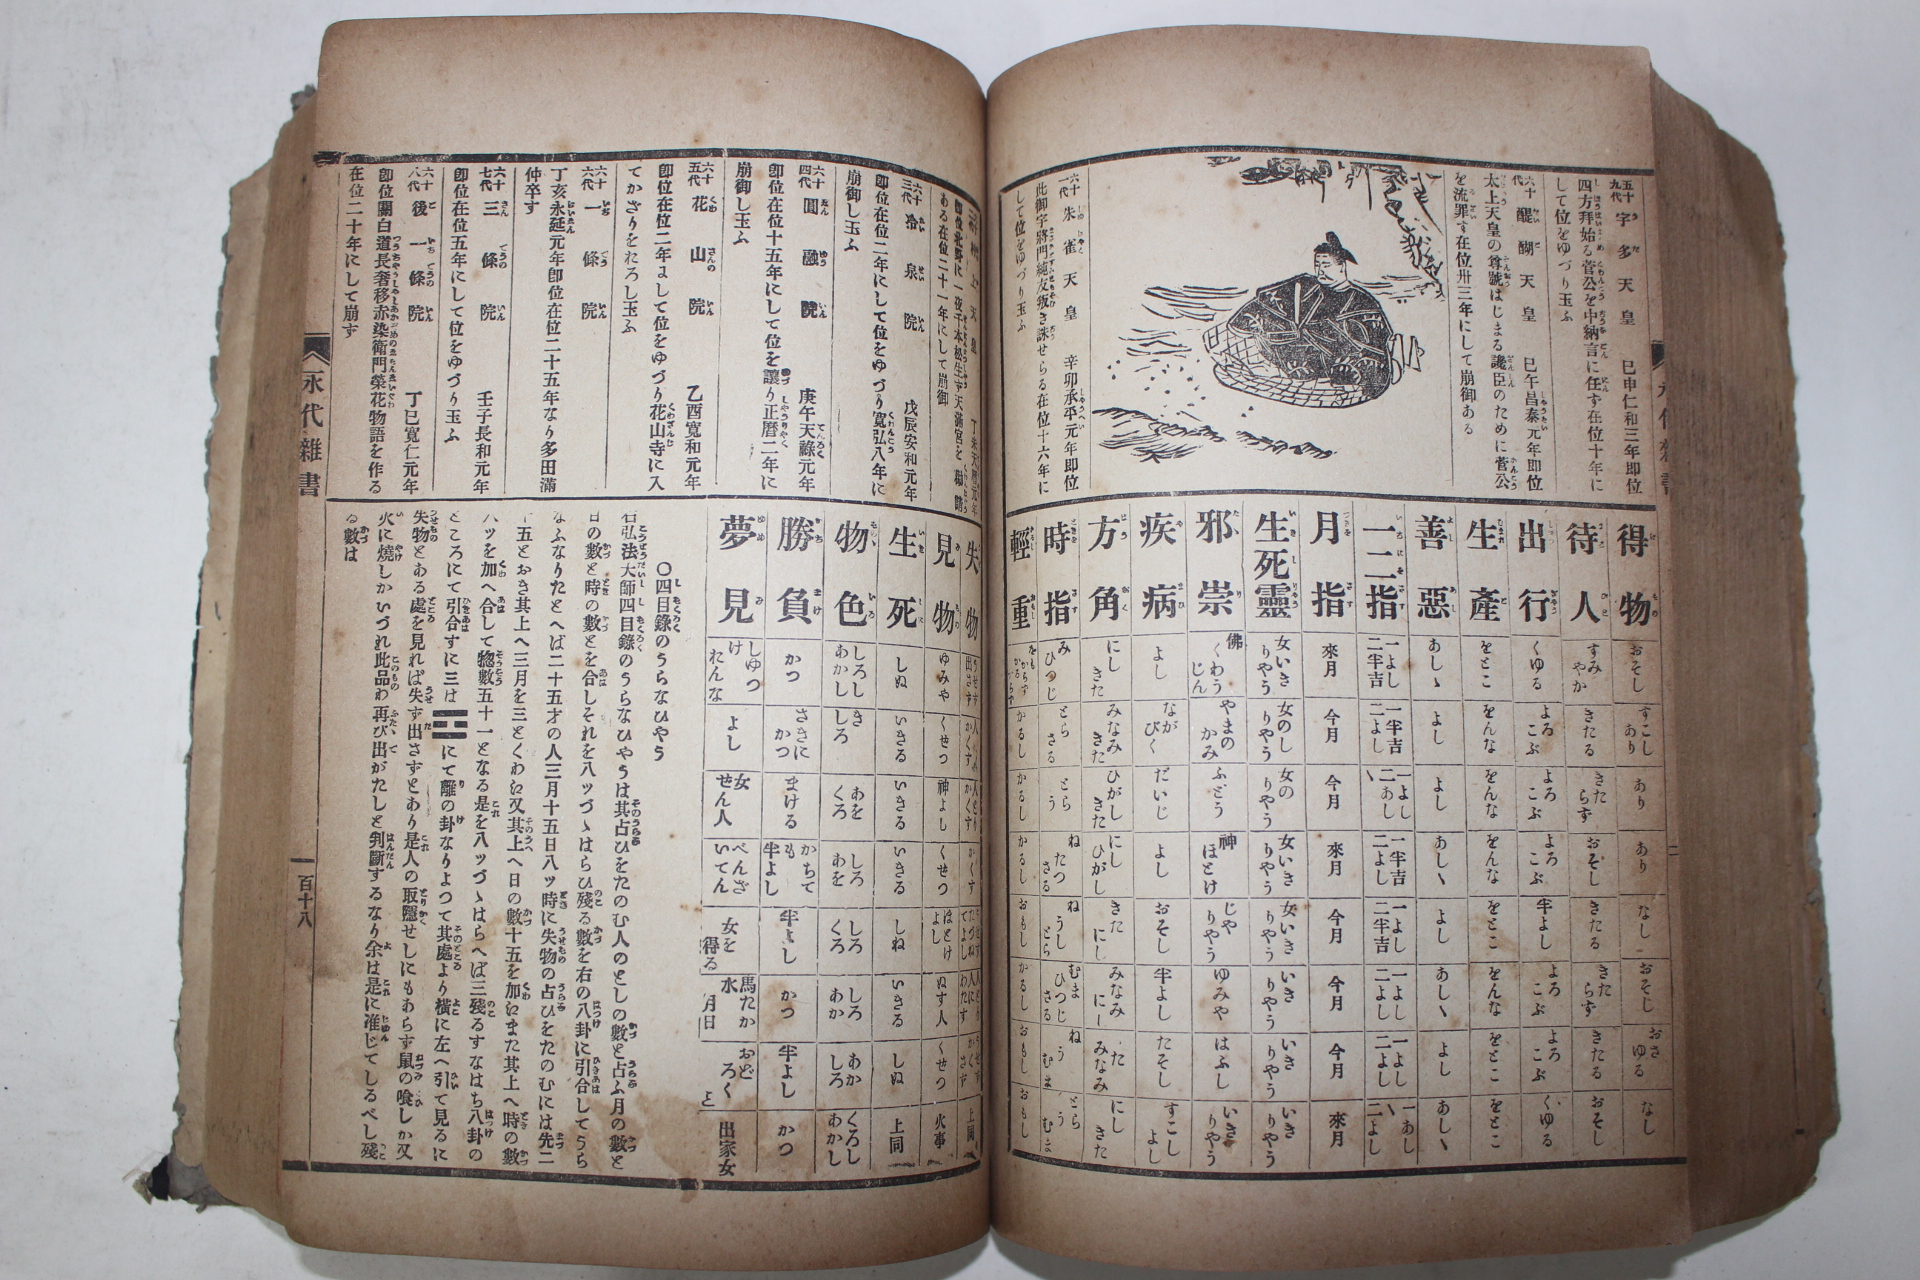 五十九代 宇多天皇 巳申仁和三年即位
四方拜始る菅公を中納言に任ず在位十年に
して位をゆづり玉ふ
六十代 醍醐天皇 巳午昌泰元年即位
太上天皇の尊號はじまる讒臣のために菅公
を流罪す在位卅三年にして崩御ある
六十一代 朱雀天皇 辛卯承平元年即位
此御宇將門純友叛き誅せらる在位十六年に
して位をゆづり玉ふ
得物 おそし すこしあり あり あり なし おそし おさゆる なし
待人 すみやか きたる きたらず おそし きたる きたらず きたる おそし
出行 くゆる よろこぶ よろこぶ よろこぶ 半よし よろこぶ よろこぶ くゆる
生產 をとこ をんな をんな をんな をとこ をんな をとこ をとこ
善惡 あしゝ よし よし あしゝ よし あしゝ よし あしゝ
一二指 一よし二半吉 一半吉二よし 一よし二あしゝ 一半吉二よし 一よし二半吉 一よし二よし 一よし二よし 一あしゝ二よし
月指 來月 今月 今月 來月 今月 今月 今月 來月
生死靈 女いきりやう 女のしりやう 女のりやう 女いきりやう 女いきりやう いきりやう いきりやう いきりやう
邪祟 佛くわうじん やまのかみ ふどう 神ほとけ じやりやう ゆみや はふし いきりやう
疾病 よし ながびく だいじ よし おそし 半よし たそし すこしよし
方角 にしきた みなみきた ひがしきた にしひがし きたにし みなみにー たみなみ にしきた
時指 みひつじ とらさる とらう ねたつさる ねうしとら むまひつじさる ねうむま とらうむま
輕重 かるし かるし かるし おもし かるし おもし おもし
ある在位二十一年にして崩御
六十三代 冷泉院 戊辰安和元年
即位在位二年にして位をゆづり寬弘八年に
崩御し玉ふ
六十四代 圓融院 庚午天祿元年
即位在位十五年にして位を讓り正曆二年に
崩御し玉ふ
六十五代 花山院 乙酉寬和元年
即位在位二年まして位をゆづり花山寺に入
てかざりをおろし玉ふ
六十六代 一條院
丁亥永延元年即位在位二十五年なり多田滿
仲卒す
六十七代 三條院 壬子長和元年
即位在位五年にして位をゆづり玉ふ
六十八代 後一條院 丁巳寬仁元年
即位關白道長奢移赤染衛門榮花物語を作る
在位二十年にして崩ず
失物
見物 ゆみや くせつ 神よし くせつ ほとけよし ぬす人 くせつ 火事
生死 しぬ いきる いきる いきる しね いきる しぬ 上同
物色 しろしあかし きしろ あをくろ しろあを しろくろ しろあか あかしろ くろしあかし
勝負 かつ さきにかつ まける かちても半よし 半よし かつ 半よし かつ
夢見 しゆつけたんな よし 女せん人 べんざいてん 女を得る 馬たか水月日 おどろくと 出家女
〇四目錄のうらなひやう
右弘法大師四目錄のうらなひやうは其占ひをたのむ人のとしの數と占ふ月の數と
日の數と時の數とを合しそれを八ッづゝはらひ殘る數を右の八卦に引合してうら
なふなりたとへば二十五才の人三月十五日八ッ時に失物の占ひをたのむには先二
十五とおき其上へ三月を三とくわね又其上へ日の數十五を加ねまた其上へ時の數
八ッを加へ合して惣數五十一となる是を八ッづゝはらへば三殘るすなはち八卦の
ところにて引合すに三は☲にて離の卦なりよつて其處より橫に左へ引て見るに
失物とある處を見れば失す出さずとあり是人の取隱せしにもあらず鼠の喰しか又
火に燒しかいづれ此品わ再び出がたしと判斷するなり余は是に准じてしるべし殘
る數は
永代雜書
一百十八